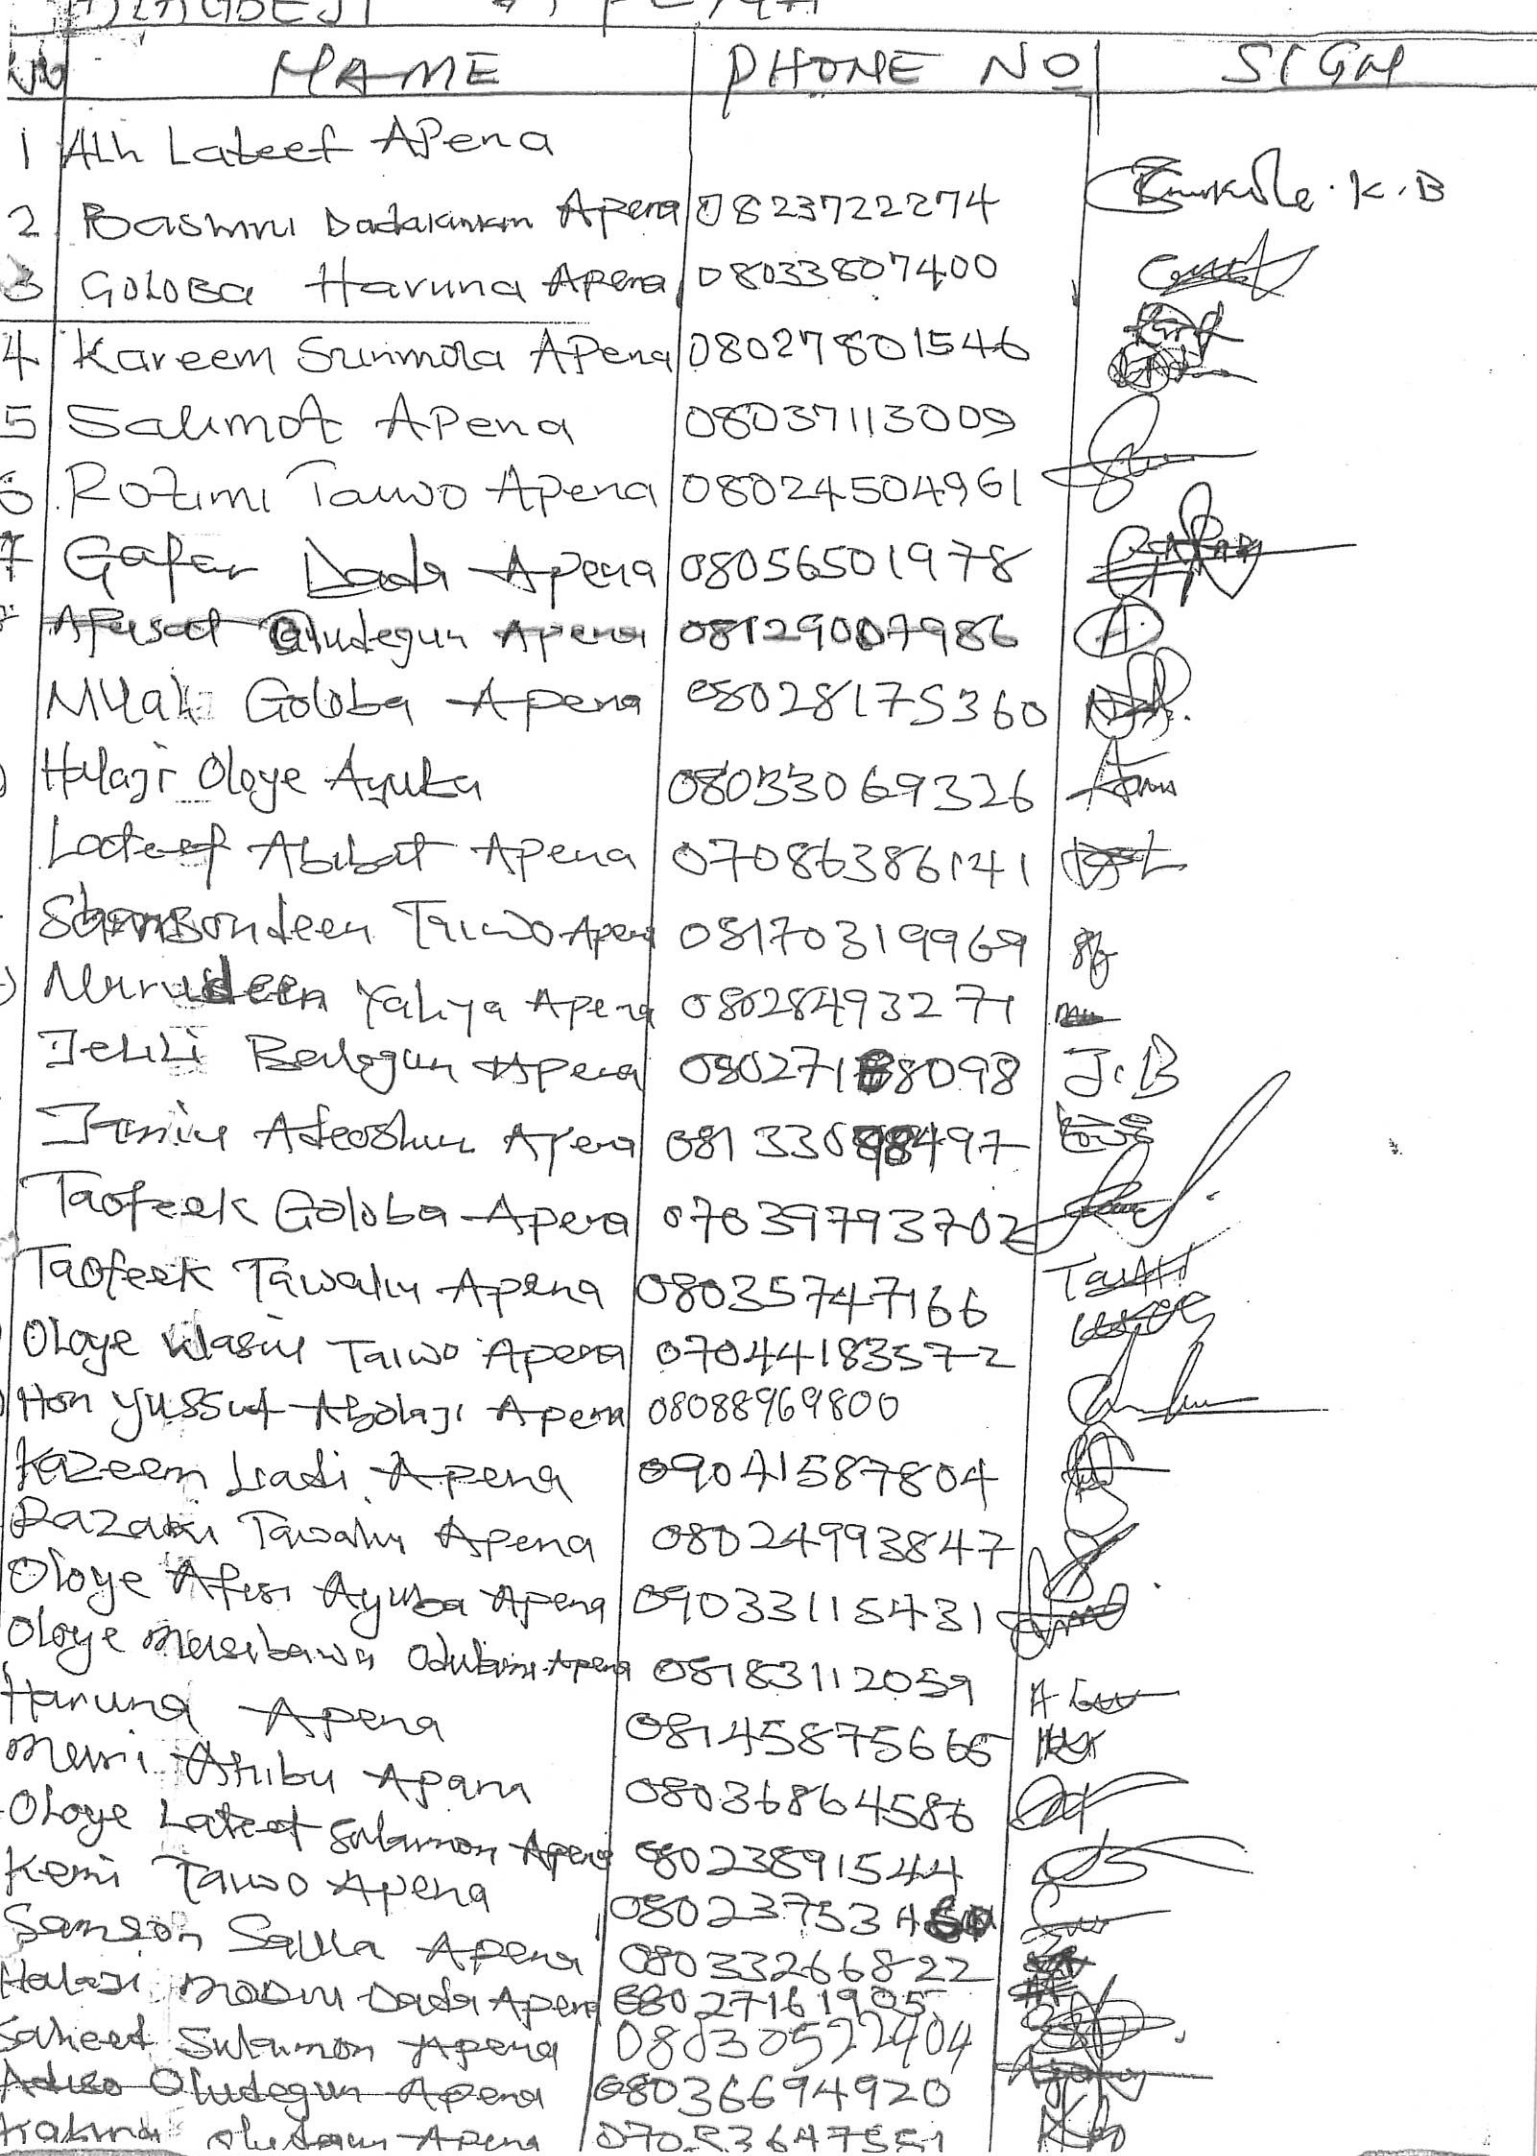 S/N NAME PHONE NO SIGN
1 Alh Lateef Apena
2 Bashiru Dadakinkin Apena 0823722274 K.B
3 GOLOBA Haruna Apena 08033807400
4 Kareem Sunmola APena 08027801546
5 Salimot APena 08037113009
6 Rotimi Taiwo Apena 08024504961
7 Gafar Dada Apena 08056501978
Afusat Oludegun Apena 08129007986 A
Goloba Apena 08028175360
Halaji Oloye Ayuba 08033069326
Lateef Abibat Apena 07086386141
Shamsondeen Taiwo Apena 08170319969
Nurudeen Yahya Apena 08028493271
Jelili Balogun Apena 080271 8098 J.B
Adeoshun Apena 081330 497
Taofeek Goloba Apena 07039793702
Taofeek Tawaliu Apena 08035747166
Oloye Wasiu Taiwo Apena 07044183572
Hon Yussuf Abolaji Apena 08088969800
Kazeem Liadi Apena 09041587804
Razaki Tawaliu Apena 08024993847
Oloye Afisi Ayuba Apena 09033115431
Oloye Odubisi Apena 08183112059
Haruna Apena 08145875665
Ashibu Apana 08036864586
Oloye Lateef Sulamon Apena 08023891544
Kemi Taiwo Apena 080237534
Samson Salila Apena 08033266822
Halaji Dada Apena 08027161905
Saheed Sulamon Apena 08030522404
Oludegun Apena 08036694920
Apena